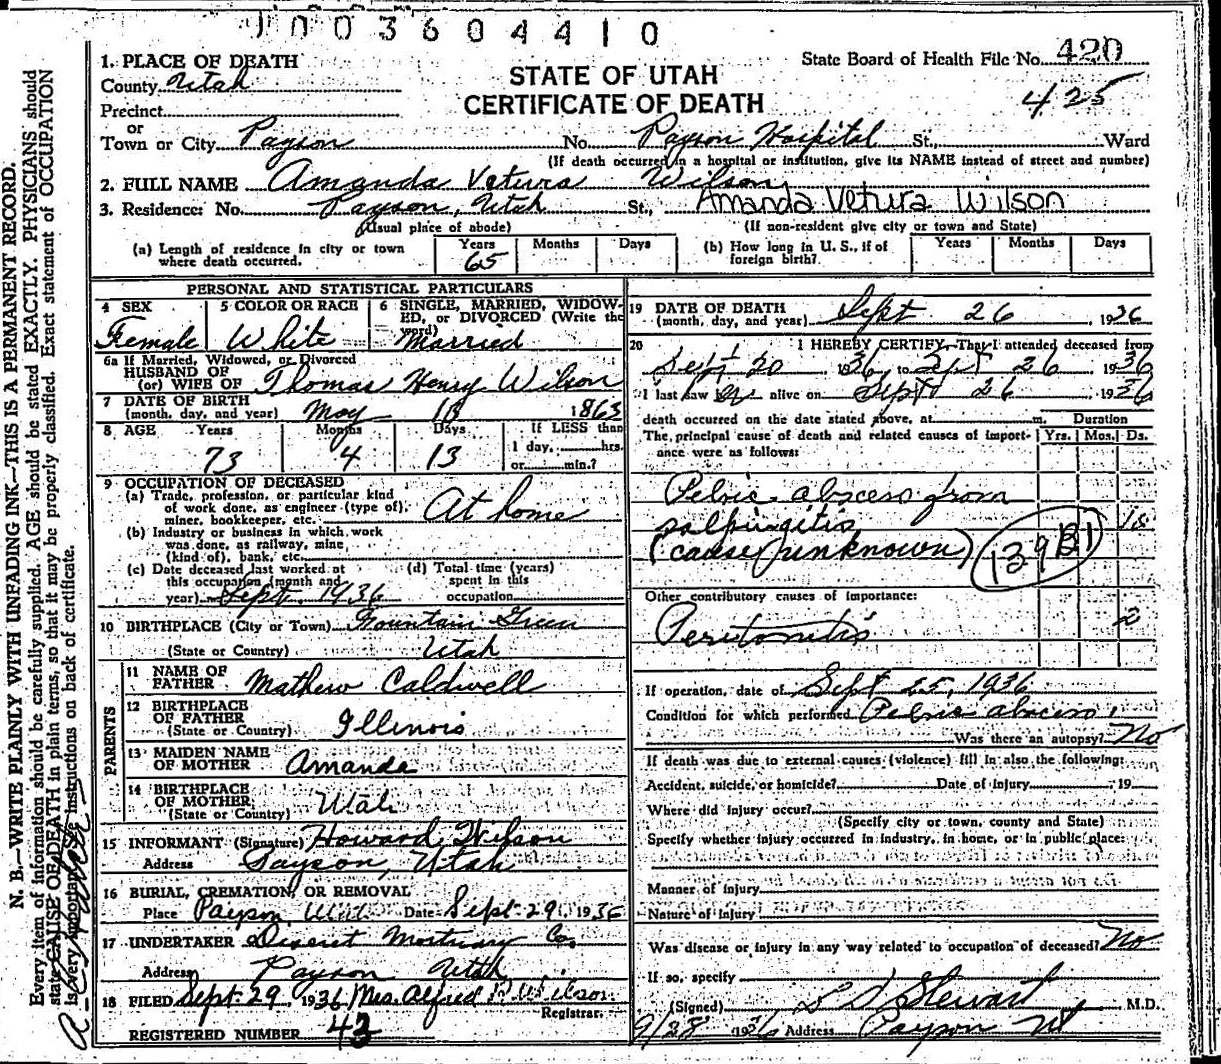 1003604410
1. PLACE OF DEATH
County Utah
Precinct
or
Town or City Payson No. Payson Hospital St., Ward
(If death occurred in a hospital or institution, give its NAME instead of street and number)
State Board of Health File No. 420
425
STATE OF UTAH
CERTIFICATE OF DEATH
2. FULL NAME Amanda Vetura Wilson
3. Residence: No. Payson, Utah St., Amanda Vetura Wilson
(Usual place of abode) (If non-resident give city or town and State)
(a) Length of residence in city or town where death occurred. Years 65 Months Days
(b) How long in U. S., if of foreign birth? Years Months Days
PERSONAL AND STATISTICAL PARTICULARS
4 SEX Female
5 COLOR OR RACE White
6 SINGLE, MARRIED, WIDOWED, or DIVORCED (Write the word) Married
6a If Married, Widowed, or Divorced
HUSBAND OF
(or) WIFE OF Thomas Henry Wilson
7 DATE OF BIRTH
(month, day, and year) May 13 1863
8 AGE Years 73 Months 4 Days 13
If LESS than
1 day, hrs.
or min.?
9 OCCUPATION OF DECEASED
(a) Trade, profession, or particular kind
of work done, as engineer (type of),
miner, bookkeeper, etc. At home
(b) Industry or business in which work
was done, as railway, mine
(kind of), bank, etc.
(c) Date deceased last worked at
this occupation (month and
year) Sept. 1936
(d) Total time (years)
spent in this
occupation
10 BIRTHPLACE (City or Town) Fountain Green
(State or Country) Utah
PARENTS
11 NAME OF
FATHER Mathew Caldwell
12 BIRTHPLACE
OF FATHER
(State or Country) Illinois
13 MAIDEN NAME
OF MOTHER Amanda
14 BIRTHPLACE
OF MOTHER
(State or Country) Utah
15 INFORMANT (Signature) Howard Wilson
Address Payson, Utah
16 BURIAL, CREMATION, OR REMOVAL
Place Payson Utah Date Sept 29, 1936
17 UNDERTAKER Deseret Mortuary Co.
Address Payson Utah
18 FILED Sept. 29, 1936 Mrs. Alfred Wilson
Registrar.
REGISTERED NUMBER 43
19 DATE OF DEATH
(month, day, and year) Sept. 26, 1936
20 I HEREBY CERTIFY, That I attended deceased from
Sept 20 1936, to Sept 26 1936
I last saw alive on Sept 26 1936
death occurred on the date stated above, at m. Duration
The principal cause of death and related causes of importance were as follows: Yrs. Mos. Ds.
Pelvic abscess from
salpingitis
(cause unknown) 139B1
Other contributory causes of importance:
Peritonitis 2
If operation, date of Sept 25, 1936
Condition for which performed Pelvic abscess
Was there an autopsy? No
If death was due to external causes (violence) fill in also the following:
Accident, suicide, or homicide? Date of injury 19
Where did injury occur?
(Specify city or town, county and State)
Specify whether injury occurred in industry, in home, or in public place:
Manner of injury
Nature of injury
Was disease or injury in any way related to occupation of deceased? No
If so, specify
(Signed) L D Stewart, M.D.
9/28 1936 Address Payson Ut
N. B.—WRITE PLAINLY WITH UNFADING INK—THIS IS A PERMANENT RECORD.
Every item of information should be carefully supplied. AGE should be stated EXACTLY. PHYSICIANS should
state CAUSE OF DEATH in plain terms, so that it may be properly classified. Exact statement of OCCUPATION
is very important. See instructions on back of certificate.